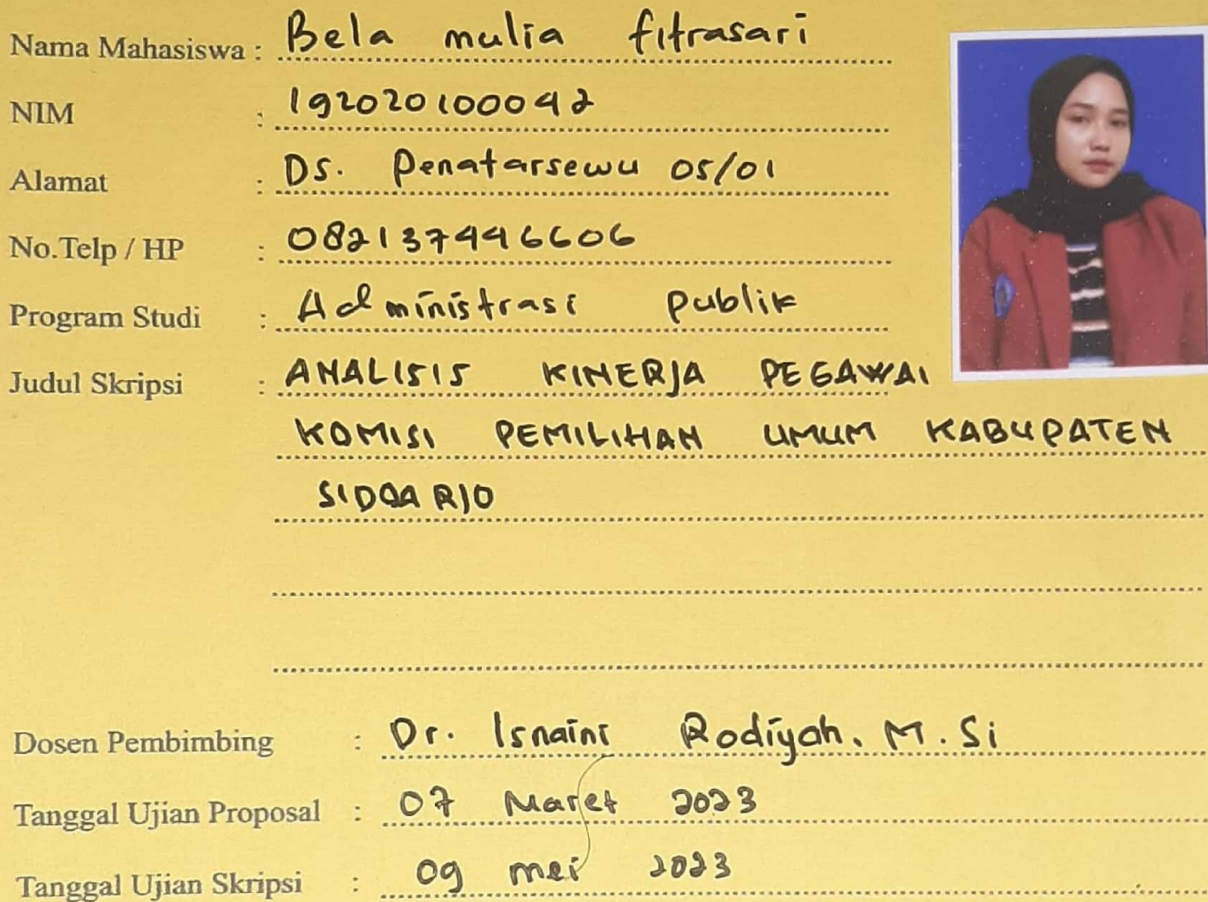 Nama Mahasiswa : Bela mulia fitrasari
NIM : 192020100042
Alamat : Ds. Penatarsewu 05/01
No.Telp / HP : 082137446606
Program Studi : Administrasi publik
Judul Skripsi : ANALISIS KINERJA PEGAWAI
KOMISI PEMILIHAN UMUM KABUPATEN
SIDOARJO
Dosen Pembimbing : Dr. Isnaini Rodiyah. M.Si
Tanggal Ujian Proposal : 07 Maret 2023
Tanggal Ujian Skripsi : 09 mei 2023